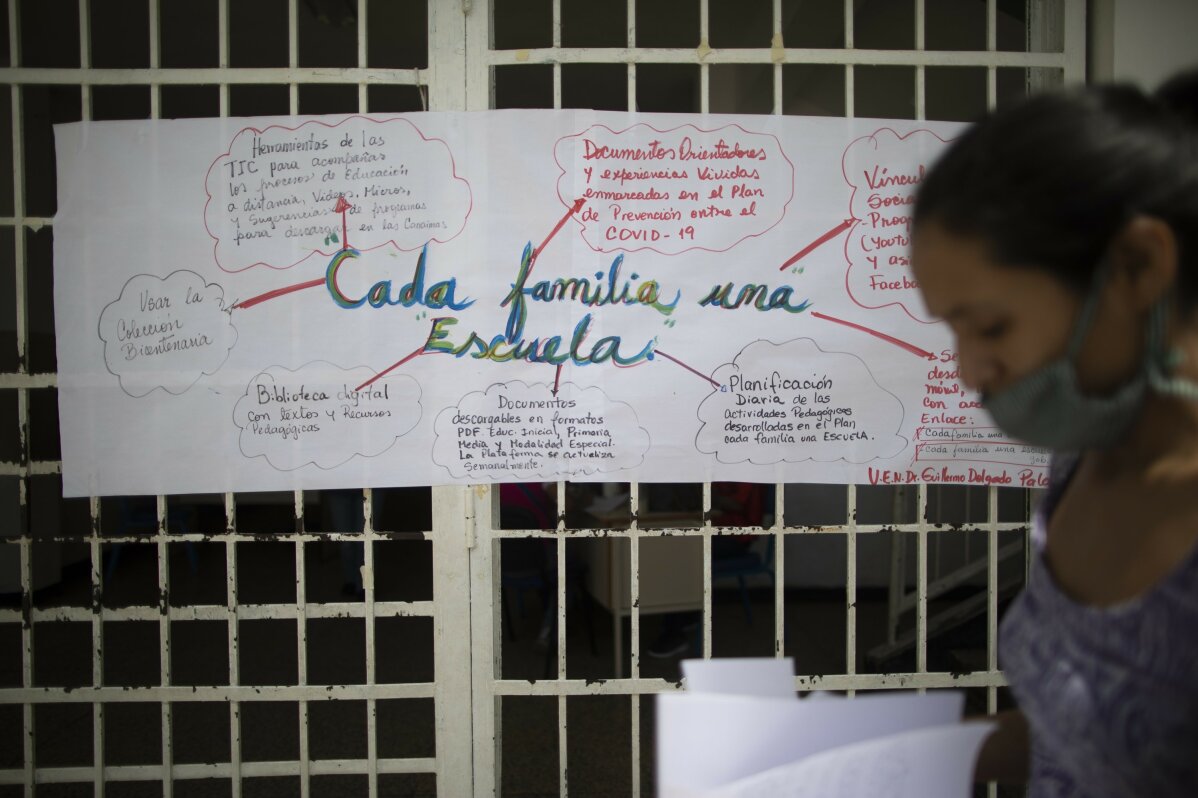 Herramientas de las
TIC para acompañar
los procesos de Educación
a distancia, Videos, Micros,
y Sugerencias de programas
para descargar en las Canaimas
Documentos Orientadores
y experiencias Vividas
enmarcadas en el Plan
de Prevención ontre el
COVID-19
Vincul
Socia
- Prog
(Youtu
y asi
Facebo
"Cada familia una
Escuela."
Usar la
Colección
Bicentenaria
Biblioteca digital
con textos y Recursos
Pedagógicos
Documentos
descargables en formatos
PDF. Educ. Inicial, Primaria
Media y Modalidad Especial.
La Plataforma se actualiza
Semanalmente.
Planificación
Diaria de las
actividades Pedagógicas
desarrolladas en el Plan
cada familia una ESCUELA.
Se
desd
móvil,
con a
Enlace:
Cadafamilia una
Cada familia una escue
.job.
U.E.N. Dr. Guillermo Delgado Pala